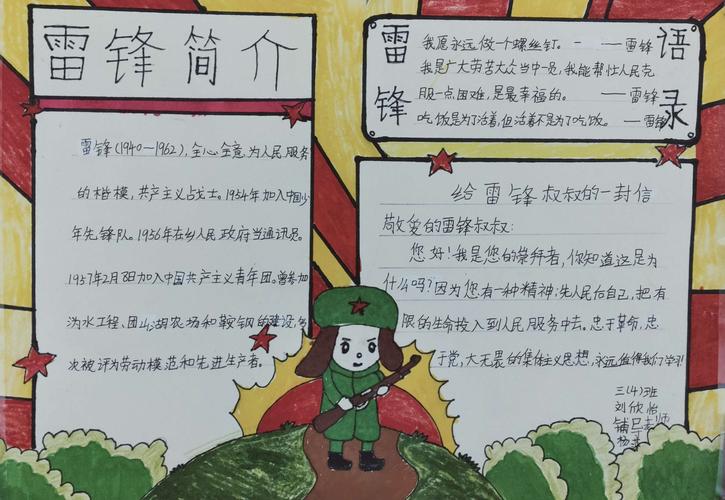 雷锋简介
雷锋(1940～1962),全心全意为人民服务
的楷模,共产主义战士。1954年加入中国少
年先锋队。1956年在乡人民政府当通讯员。
1957年2月8日加入中国共产主义青年团。曾参加
沩水工程、团山湖农场和鞍钢的建设,多
次被评为劳动模范和先进生产者。
雷锋语录
我愿永远做一个螺丝钉。——雷锋
我是广大劳苦大众当中一员,我能帮忙人民克
服一点困难,是最幸福的。——雷锋
吃饭是为了活着,但活着不是为了吃饭。——雷锋
给雷锋叔叔的一封信
敬爱的雷锋叔叔:
您好!我是您的崇拜者,你知道这是为
什么吗?因为您有一种精神:先人民后自己,把有
限的生命投入到人民服务中去。忠于革命,忠
于党,大无畏的集体主义思想,永远值得我们学习!
三(4)班
刘欣怡
辅导老师
杨